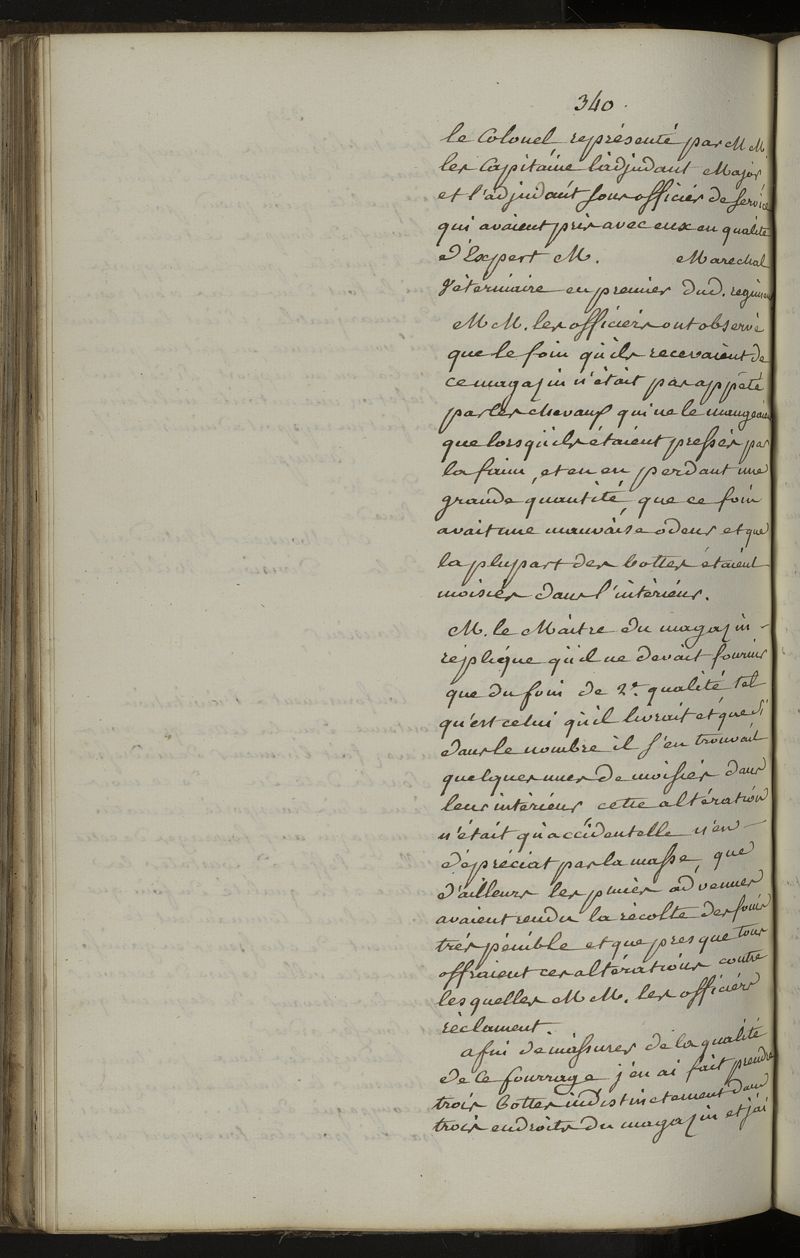 340.
le Colonel représenté par MM
les Capitaine l'adjudant Major
et l'adjudant sous officier de service
qui avaient pris avec eux en qualité
d'Expert M. Marechal
Vétérinaire en premier dud. regiment
MM. les officiers ont observé
que le foin qu'ils recevaient de
ce magazin n'était pas appété
par les chevaux qui ne le mangeaient
que lorsqu'ils étaient pressés par
la faim, et en en perdant une
grande quantité, que ce foin
avait une mauvaise odeur et que
la plupart des bottes étaient
moisies dans l'intérieur.
M. le Maître du magazin
réplique qu'il ne devait fournir
que du foin de 2e. qualité tel
qu'est celui qu'il livrait et que si
dans le nombre il s'en trouvait
quelques unes de moisies dans
leur intérieur cette altération
n'était qu'accidentelle n'en
dépréciat pas la masse, que
d'ailleurs les pluies advenues
avaient rendu la récolte des foins
très pénible et que presque tous
offraient ces altérations contre
lesquelles MM. les officiers
réclament.
afin de m'assurer de la qualité
de ce fourrage j'en ai fait prendre
trois bottes indistinctement dans
trois endroits du magazin et j'ai